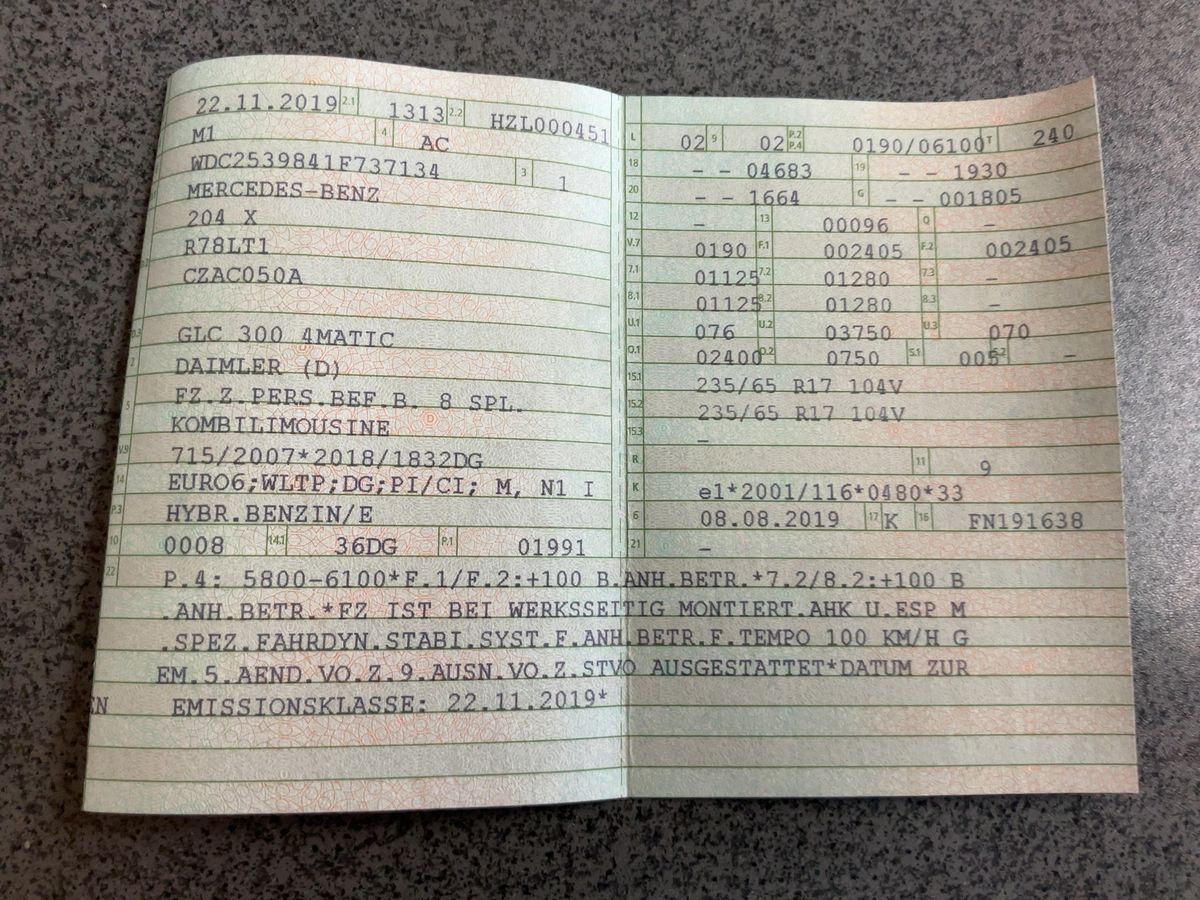 22.11.2019 2.1 1313 2.2 HZL000451
M1 4 AC
WDC2539841F737134 3 1
MERCEDES-BENZ
204 X
R78LT1
CZAC050A
GLC 300 4MATIC
2 DAIMLER (D)
5 FZ.Z.PERS.BEF.B. 8 SPL.
KOMBILIMOUSINE
V.9 715/2007*2018/1832DG
14 EURO6;WLTP;DG;PI/CI; M, N1 I
P.3 HYBR.BENZIN/E
10 0008 14.1 36DG P.1 01991
L 02 9 02 P.2 P.4 0190/06100 T 240
18 - - 04683 19 - - 1930
20 - - 1664 G - - 001805
12 - 13 00096 Q -
V.7 0190 F.1 002405 F.2 002405
7.1 01125 7.2 01280 7.3 -
8.1 01125 8.2 01280 8.3 -
U.1 076 U.2 03750 U.3 070
O.1 02400 O.2 0750 S.1 005 S.2 -
15.1 235/65 R17 104V
15.2 235/65 R17 104V
15.3 -
R 11 9
K e1*2001/116*0480*33
6 08.08.2019 17 K 16 FN191638
21 -
22 P.4: 5800-6100*F.1/F.2:+100 B.ANH.BETR.*7.2/8.2:+100 B
.ANH.BETR.*FZ IST BEI WERKSSEITIG MONTIERT.AHK U.ESP M
.SPEZ.FAHRDYN.STABI.SYST.F.ANH.BETR.F.TEMPO 100 KM/H G
EM.5.AEND.VO.Z.9.AUSN.VO.Z.STVO AUSGESTATTET*DATUM ZUR
EN EMISSIONSKLASSE: 22.11.2019*